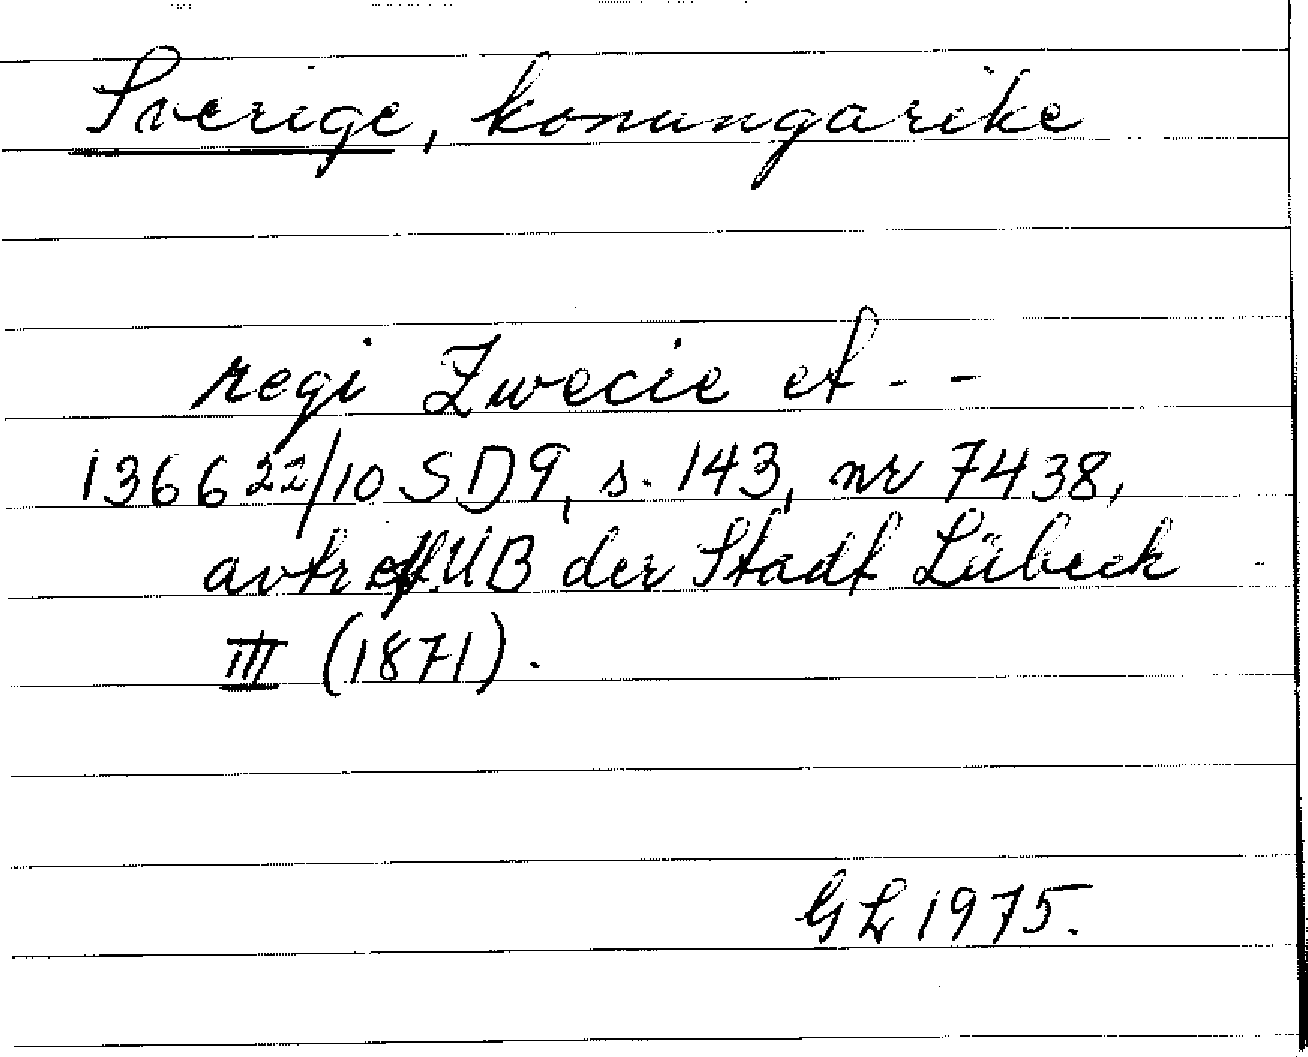 Sverige, konungarike
regi Zwecie et - -
1366 22/10 SD9, s. 143, nr 7438,
avtr eft. UB der Stadt Lübeck
III (1871).
GL 1975.